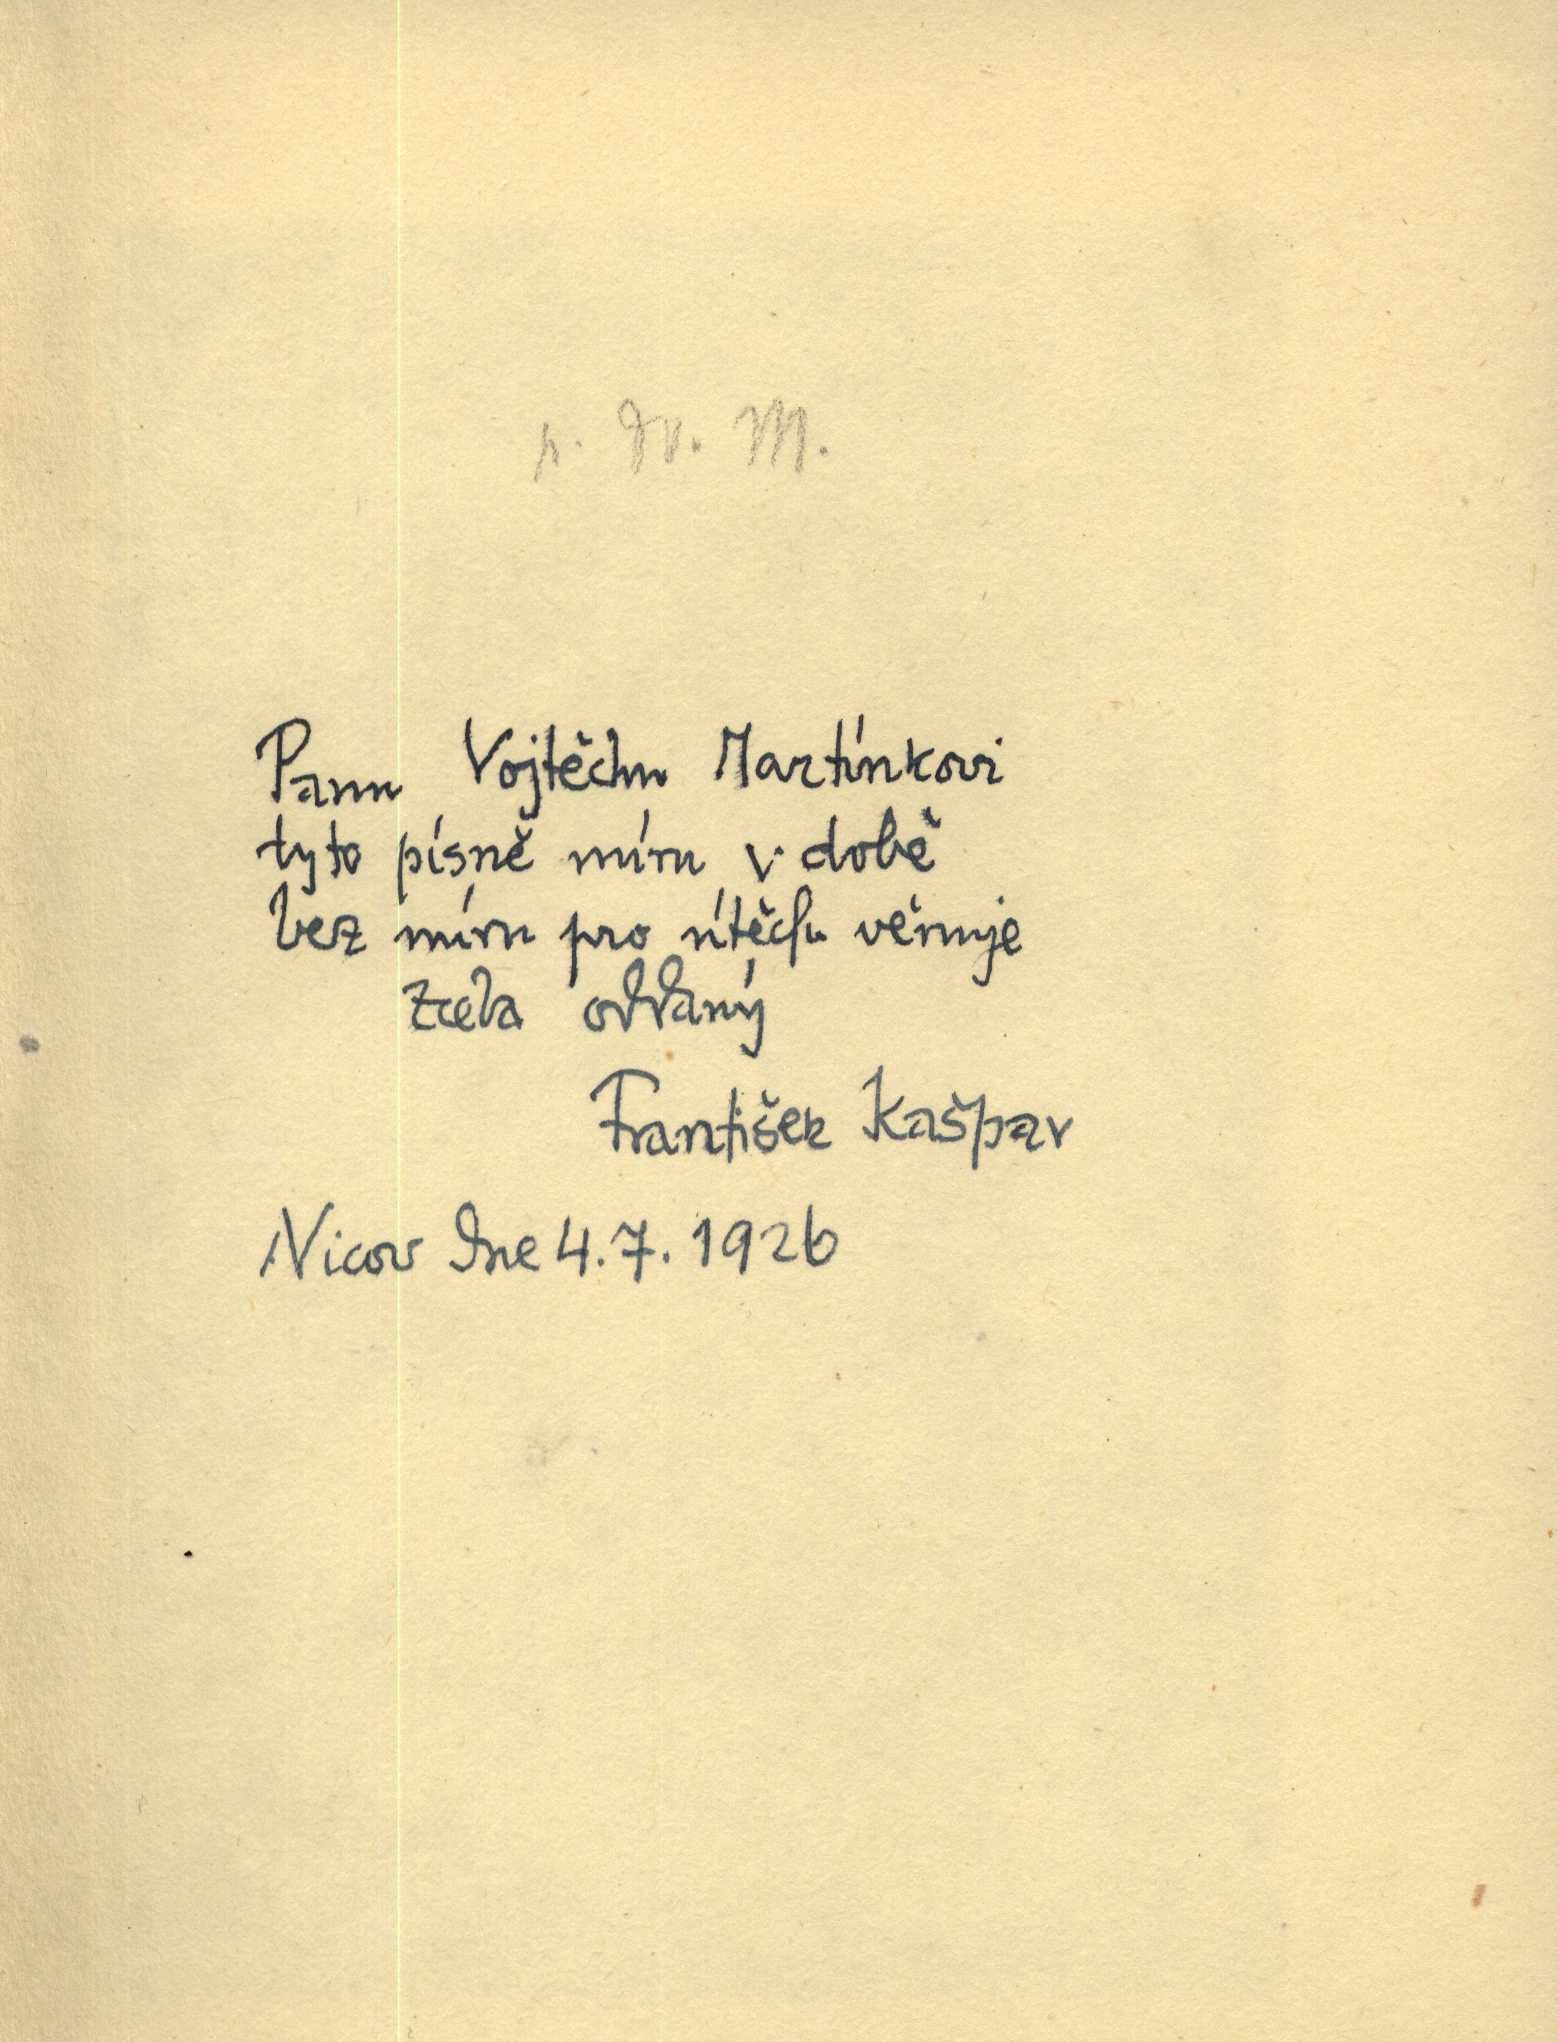 Panu Vojtěchu Martínkovi
tyto písně míru v době
bez míru pro útěchu věnuje
zcela oddaný
František Kašpar
Nicov dne 4.7.1926